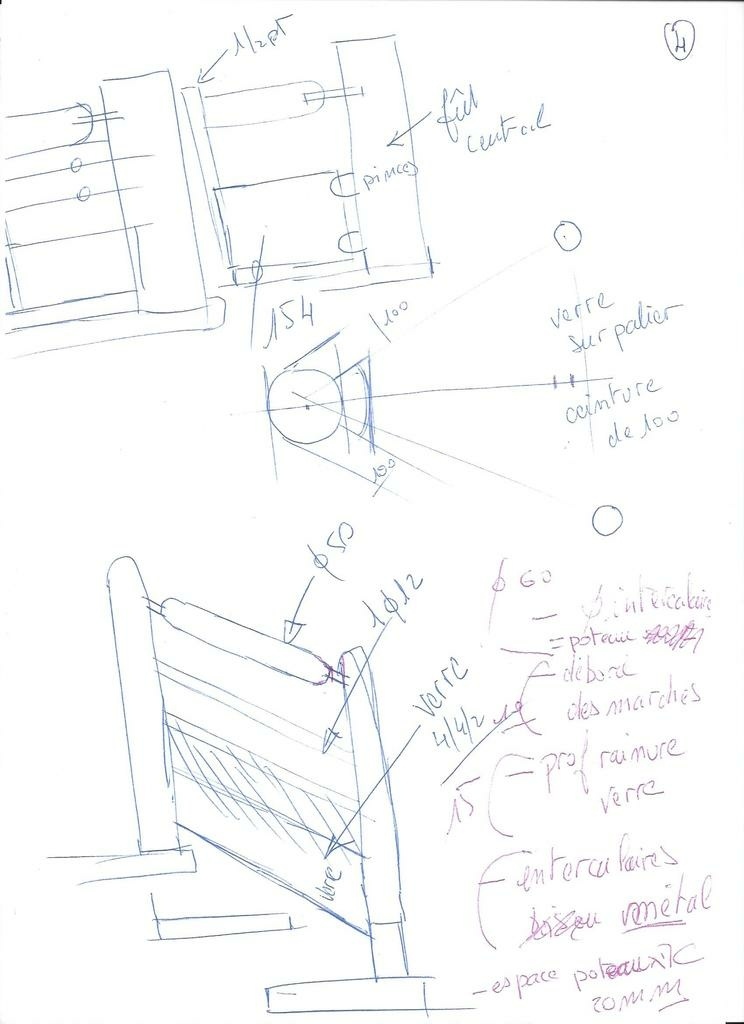 4
1/2 pt
fût
central
pinces
154
100
verre
sur palier
ceinture
de 100
100
ϕ 50
1 ϕ 12
verre
4/4/2
verre
ϕ 60
- ϕ intercalaire
= poteau
- débord
des marches
15
- prof rainure
verre
- entercalaires
métal
- espace poteaux
20 mm